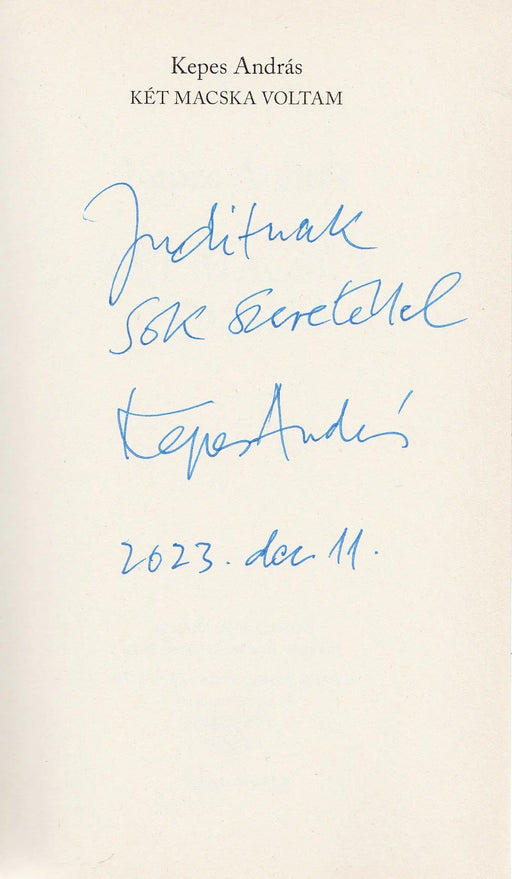 Kepes András
KÉT MACSKA VOLTAM
Juditnak
Sok szeretettel
Kepes András
2023. dec 11.